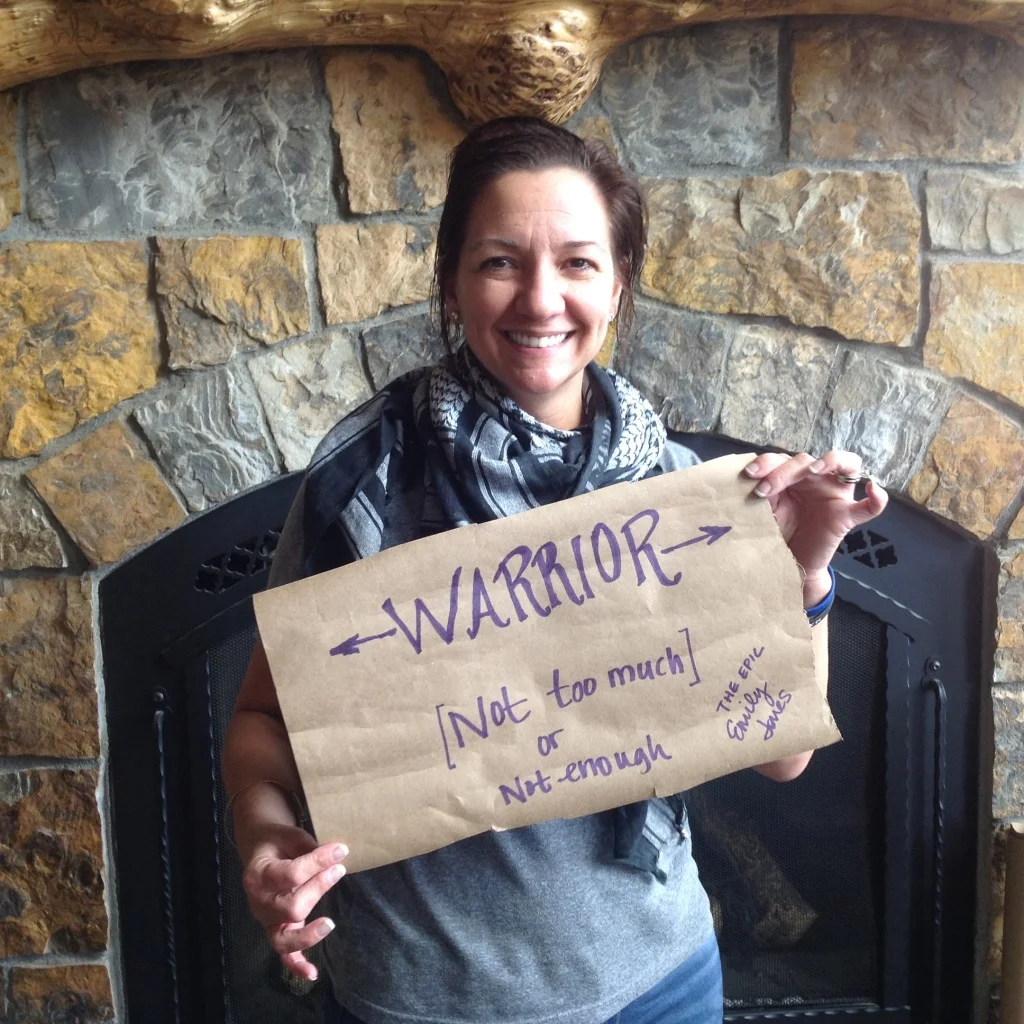 WARRIOR
[Not too much]
or
Not enough
THE EPIC
Emily
Jones